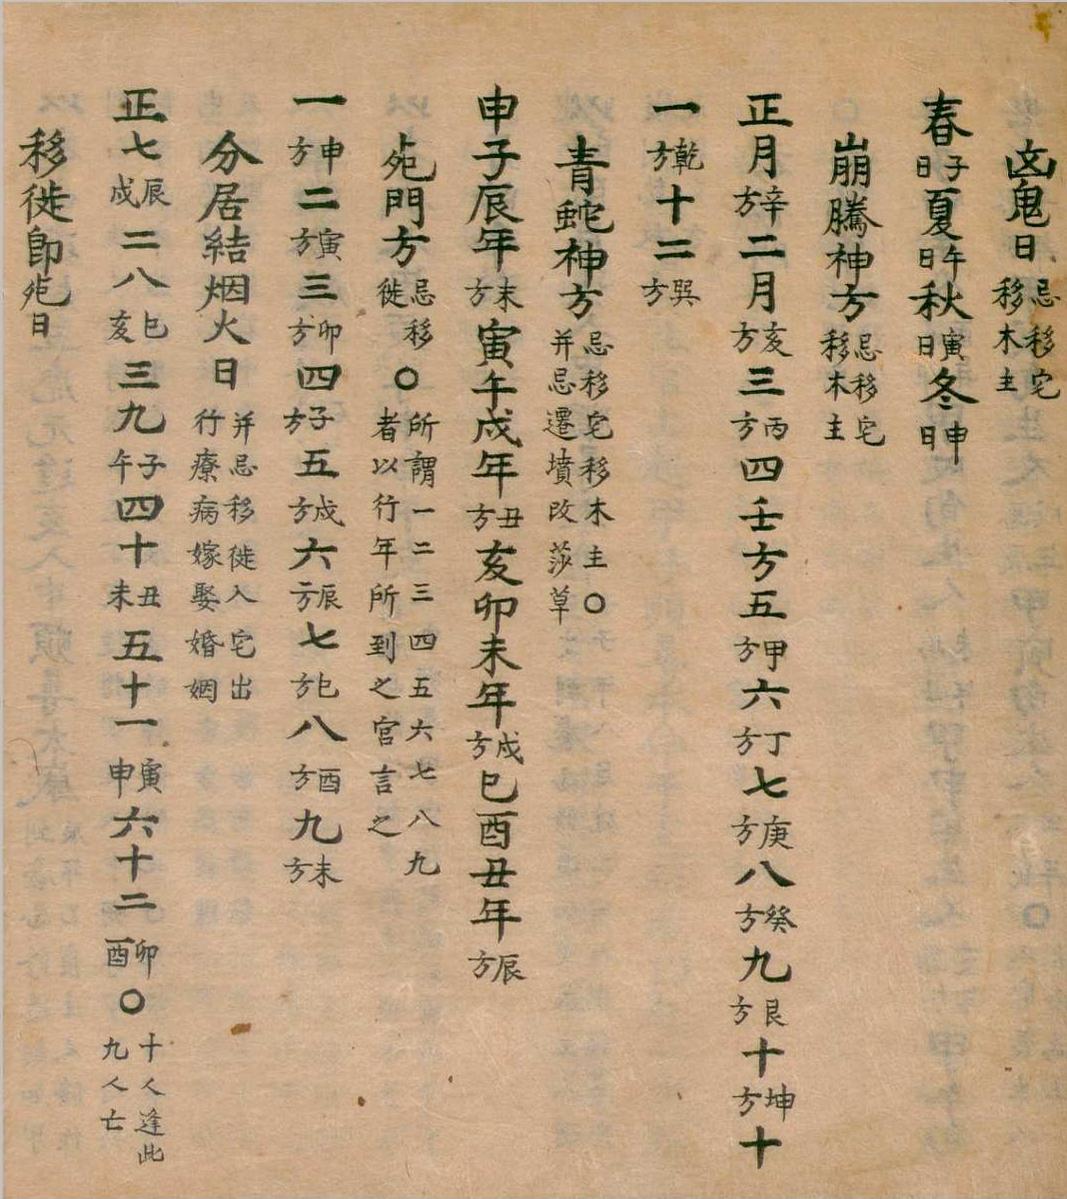 凶鬼日忌移宅移木主
春子日夏午日秋寅日冬申日
崩騰神方忌移宅移木主
正月辛方二月亥方三丙方四壬方五甲方六丁方七庚方八癸方九艮方十坤方十
一乾方十二巽方
青蛇神方忌移宅移木主○并忌遷墳改莎草
申子辰年未方寅午戌年丑方亥卯未年戌方巳酉丑年辰方
死門方忌移徙○所謂一二三四五六七八九者以行年所到之宮言之
一申方二寅方三卯方四子方五戌方六辰方七巳方八酉方九未方
分居結烟火日并忌移徙入宅出行療病嫁娶婚姻
正七辰戌二八巳亥三九子午四十丑未五十一寅申六十二卯酉○十人逢此九人亡
移徙即死日